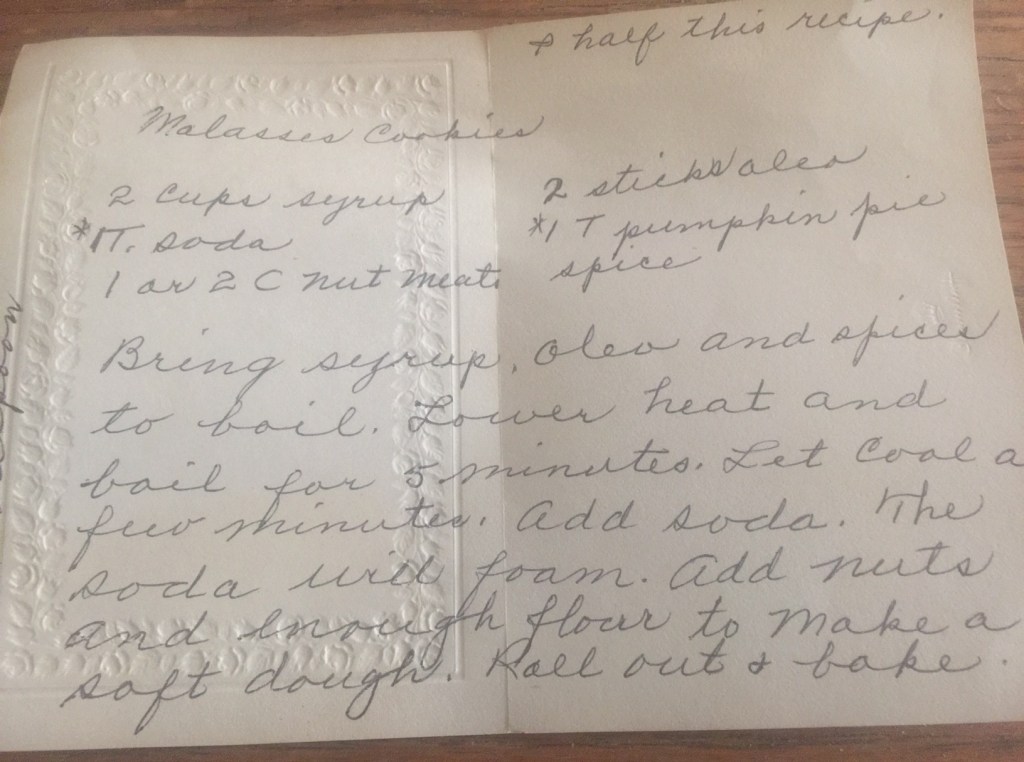 & half this recipe.
Malasses Cookies
2 Cups syrup 2 sticks oleo
*1T. soda *1 T pumpkin pie
1 or 2 C nut meats spice
Bring syrup, oleo and spices
to boil. Lower heat and
boil for 5 minutes. Let Cool a
few minutes. Add soda. The
soda will foam. Add nuts
and enough flour to make a
soft dough. Roll out & bake.